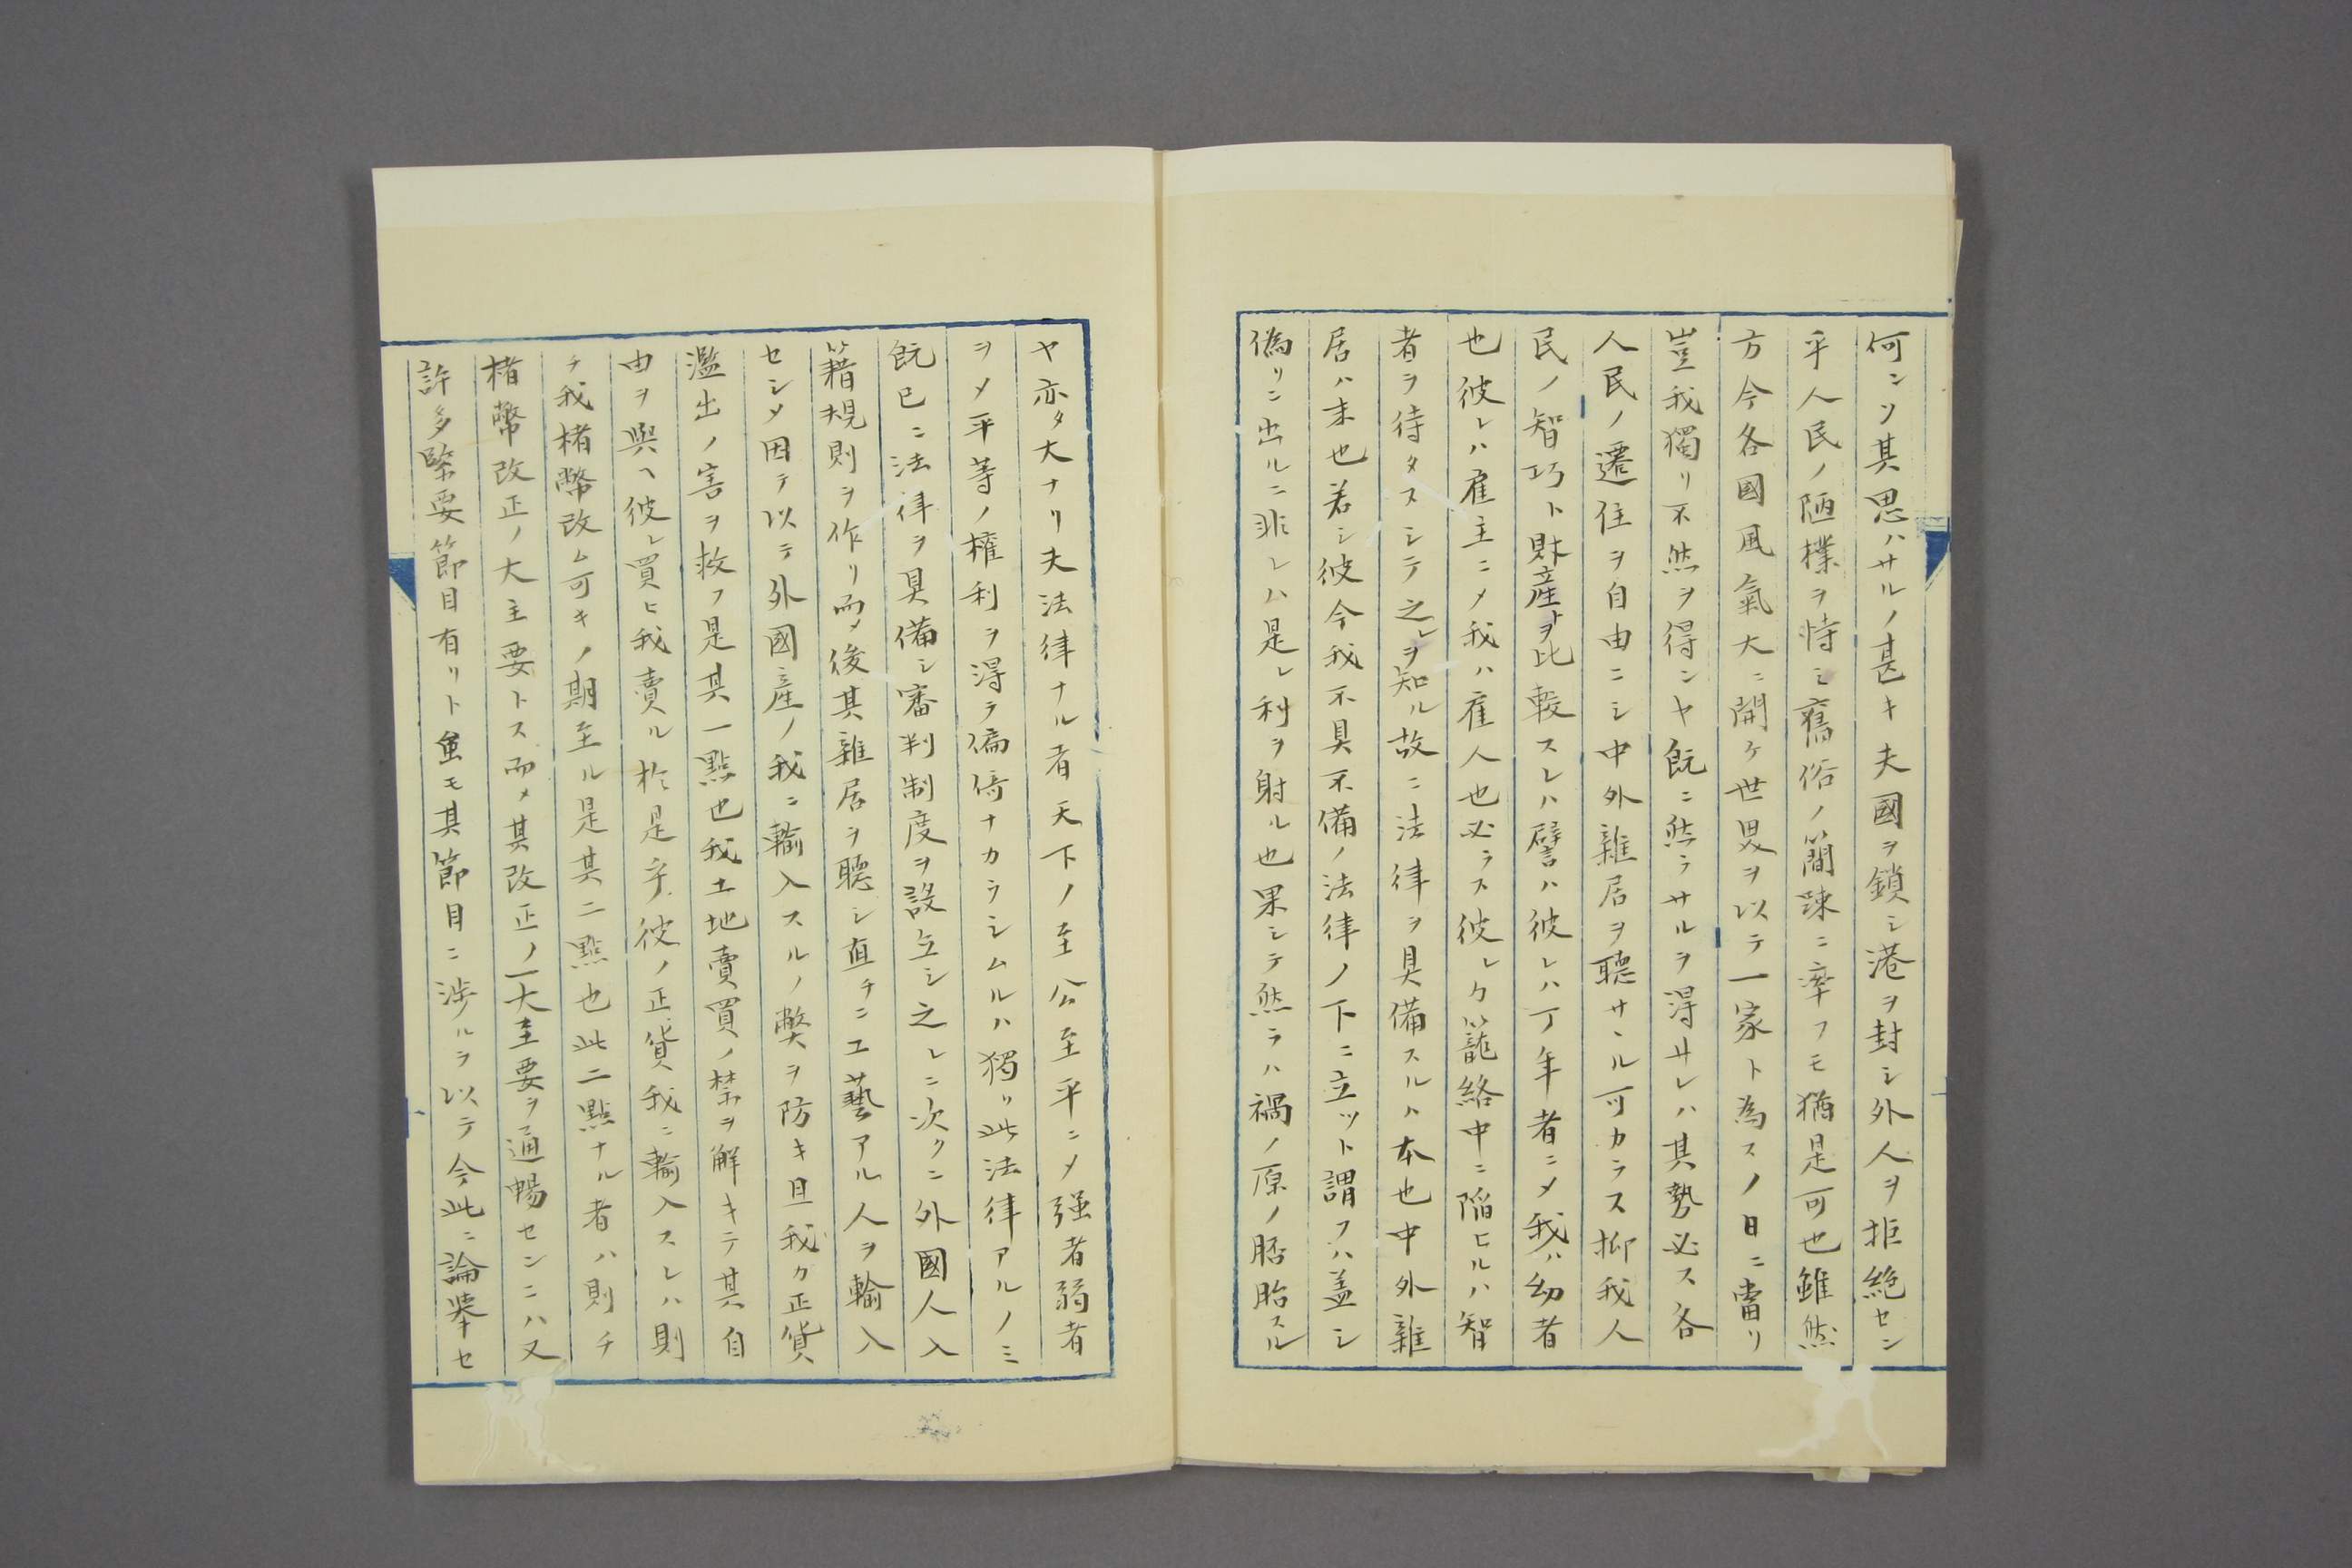 何ンソ其思ハサルノ甚キ夫國ヲ鎖シ港ヲ封シ外人ヲ拒絶セン
乎人民ノ陋樸ヲ恃ミ舊俗ノ簡踈ニ率フモ猶是可也雖然
方今各國風氣大ニ開ケ世界ヲ以テ一家ト為スノ日ニ當リ
豈我獨リ不然ヲ得ンヤ既ニ然ラサルヲ得サレハ其勢必ス各
人民ノ遷住ヲ自由ニシ中外雜居ヲ聽サヽル可カラス抑我人
民ノ智巧ト財産ヲ比較スレハ譬ハ彼レハ丁年者ニメ我ハ幼者
也彼レハ雇主ニメ我ハ雇人也必ラス彼レカ籠絡中ニ陥ヒルハ智
者ヲ待タスシテ之レヲ知ル故ニ法律ヲ具備スルハ本也中外雜
居ハ末也若シ彼今我不具不備ノ法律ノ下ニ立ツト謂フハ盖シ
偽リニ出ルニ非レハ是レ利ヲ射ル也果シテ然ラハ禍ノ原ノ胚胎スル
ヤ亦タ大ナリ夫法律ナル者天下ノ至公至平ニメ强者弱者
ヲメ平等ノ權利ヲ得テ偏倚ナカラシムルハ獨リ此法律アルノミ
既已ニ法律ヲ具備シ審判制度ヲ設立シ之レニ次クニ外國人入
籍規則ヲ作リ而メ後其雜居ヲ聽シ直チニ工藝アル人ヲ輸入
セシメ因テ以テ外國産ノ我ニ輸入スルノ弊ヲ防キ且我カ正貨
濫出ノ害ヲ救フ是其一點也我土地賣買ノ禁ヲ解キテ其自
由ヲ與ヘ彼レ買ヒ我賣ル於是乎彼ノ正貨我ニ輸入スレハ則
チ我楮幣改ム可キノ期至ル是其二點也此二點ナル者ハ則チ
楮幣改正ノ大主要トス而メ其改正ノ一大主要ヲ通暢センニハ又
許多緊要節目有リト虽モ其節目ニ渉ルヲ以テ今此ニ論挙セ